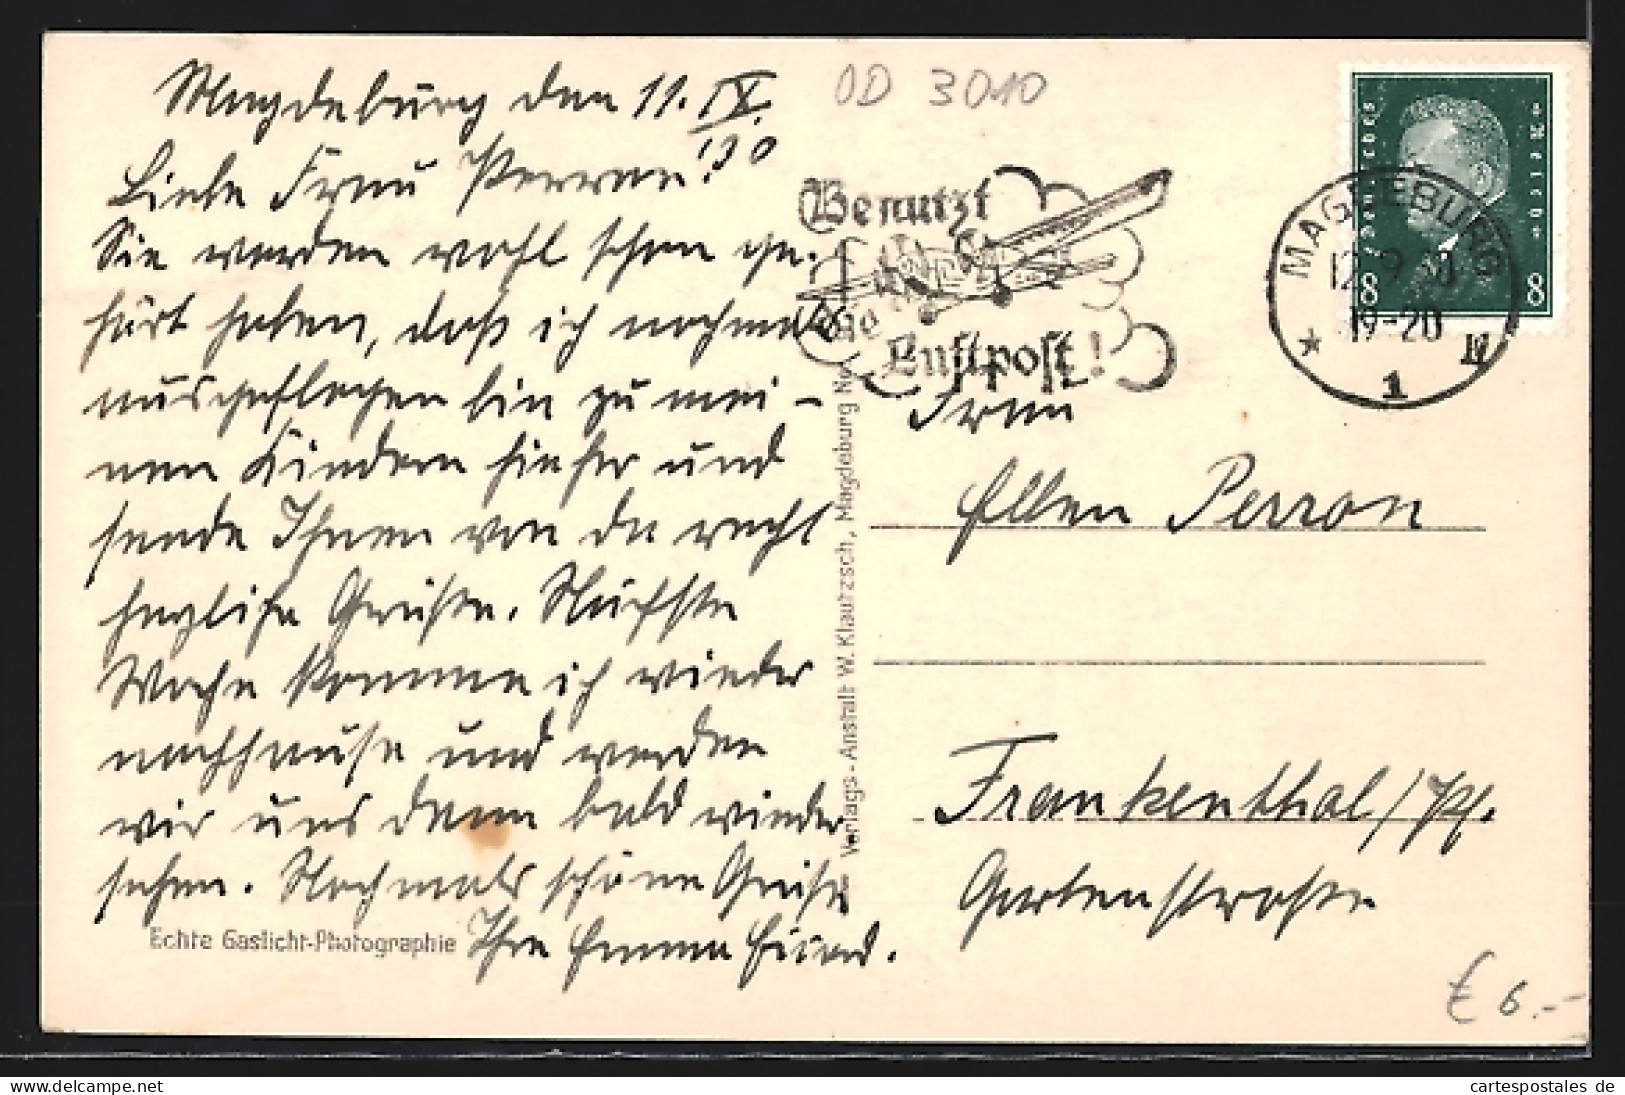 Magdeburg den 11. IX.
130
Liebe Frau Perron!
Sie werden wohl schon ge-
hört haben, daß ich nochmals
ausgeflogen bin zu mei-
nen Kindern hieher und
sende Ihnen von da recht
herzliche Grüße. Nächste
Woche komme ich wieder
nachhause und werden
wir uns dann bald wieder
sehen. Nochmals schöne Grüße
Ihre Emma
Echte Gaslicht-Photographie
Verlags-Anstalt W. Klautzsch, Magdeburg No
OD 3010
Benutzt
die
Luftpost!
Deutsches Reich
8 8
MAGDEBURG
12.9.30
19-20
* 1
Frau
Ellen Perron
Frankenthal/Pf.
Gartenstraße
€ 6.-
www.delcampe.net
cartespostales de